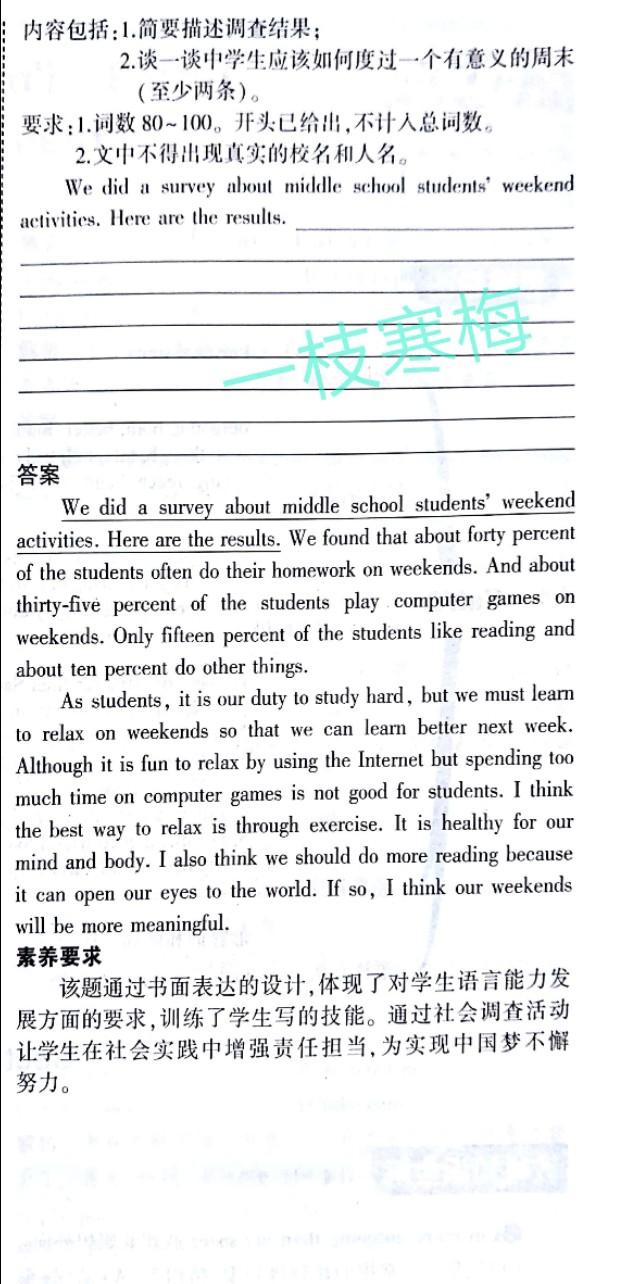 内容包括:1.简要描述调查结果;
2.谈一谈中学生应该如何度过一个有意义的周末
(至少两条)。
要求:1.词数 80~100。开头已给出,不计入总词数。
2.文中不得出现真实的校名和人名。
We did a survey about middle school students' weekend
activities. Here are the results.
一枝寒梅
答案
We did a survey about middle school students' weekend
activities. Here are the results. We found that about forty percent
of the students often do their homework on weekends. And about
thirty-five percent of the students play computer games on
weekends. Only fifteen percent of the students like reading and
about ten percent do other things.
As students, it is our duty to study hard, but we must learn
to relax on weekends so that we can learn better next week.
Although it is fun to relax by using the Internet but spending too
much time on computer games is not good for students. I think
the best way to relax is through exercise. It is healthy for our
mind and body. I also think we should do more reading because
it can open our eyes to the world. If so, I think our weekends
will be more meaningful.
素养要求
该题通过书面表达的设计,体现了对学生语言能力发
展方面的要求,训练了学生写的技能。通过社会调查活动
让学生在社会实践中增强责任担当,为实现中国梦不懈
努力。